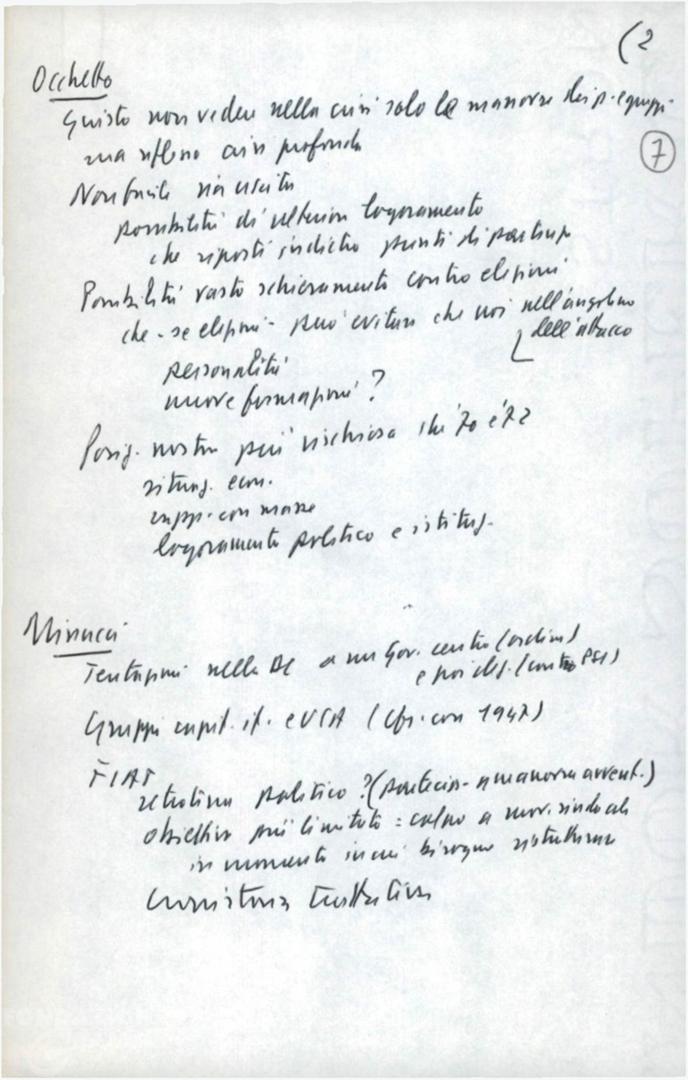 (2
Occhetto
Giusto non vedere nella crisi solo la manovra dei p. gruppi
7
ma riflesso crisi profonda
Non facile via uscita
possibilità di ulteriori logoramento
che riporti indietro punti di partenza
Possibilità vasto schieramento contro elezioni
che - se elezioni - può evitare che noi nell'angolino
dell'attacco
personalità
nuove formazioni?
Posiz. nostra più rischiosa che '70 e '72
situaz. econ.
rapp. con masse
logoramento politico e istituz.
Minucci
Tentazioni nella DC a un Gov. centro (ordine)
e poi elez. (contro PSI)
Gruppi capit. it. e USA (cfr. con 1947)
FIAT
politico? (partecip. a manovra avvent.)
obiettivo più limitato = colpo a mov. sindacale
in momento in cui bisogna ristrutturare
trattativa